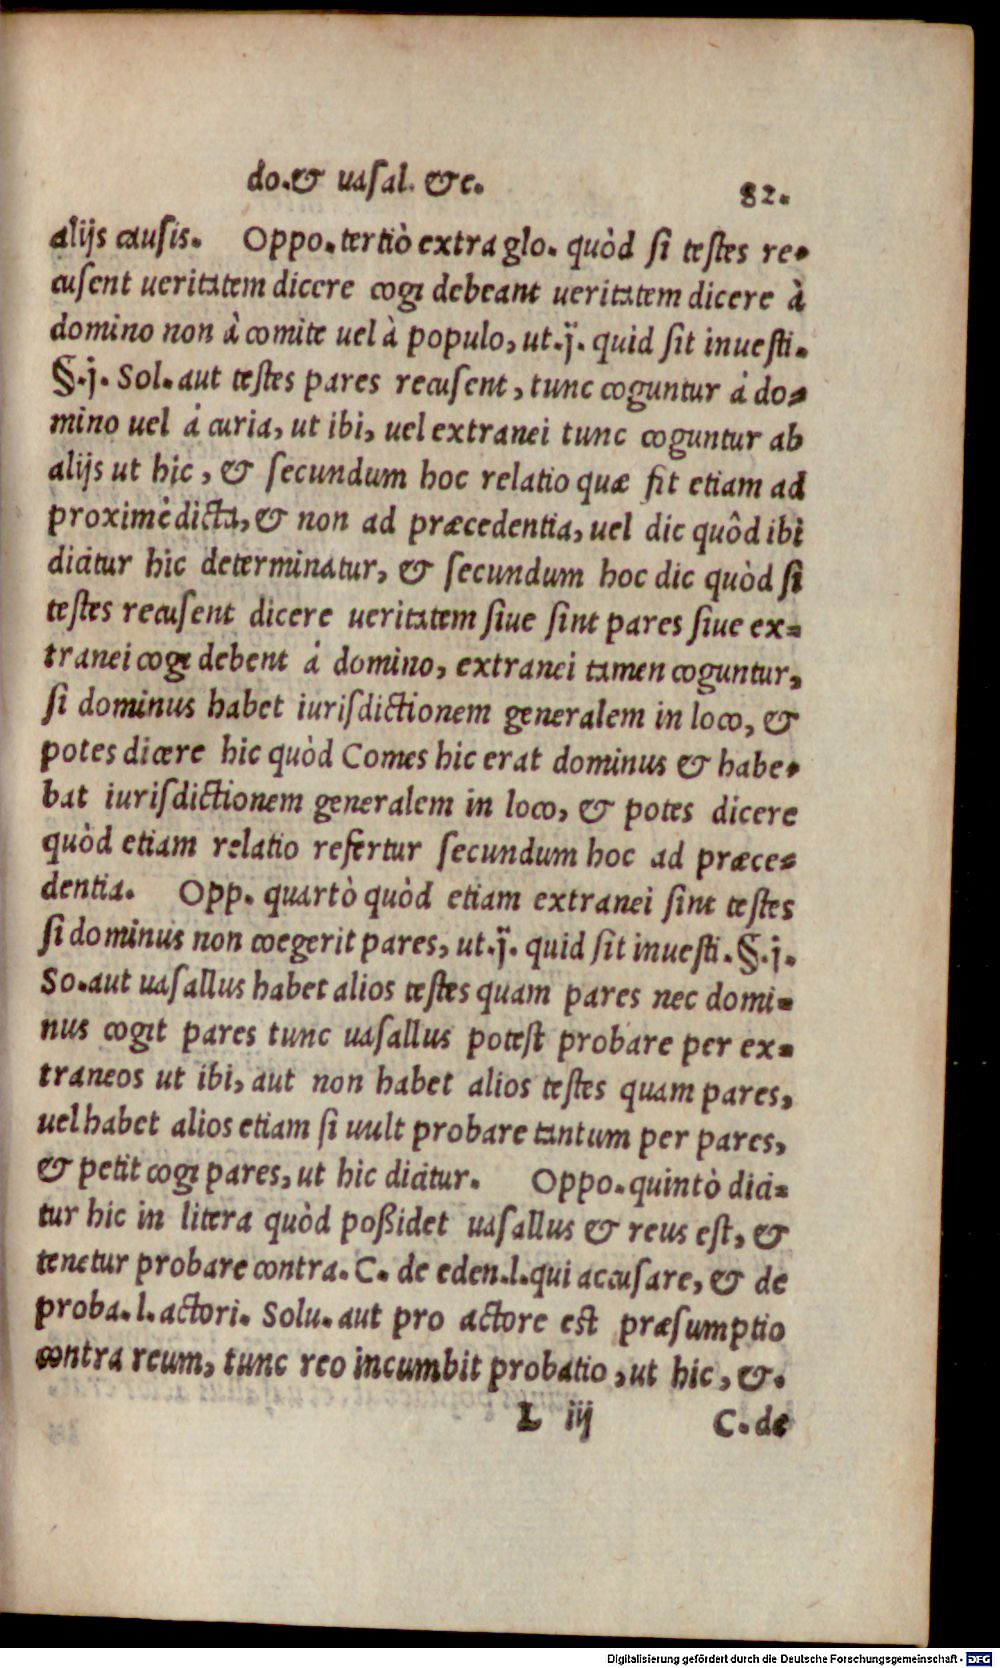 do.& uasal. &c.
82.
alijs causis. Oppo.tertiò extra glo. quòd si testes re-
cusent ueritatem dicere cogi debeant ueritatem dicere à
domino non à comite uel à populo, ut.ij. quid sit inuesti.
§.j. Sol.aut testes pares recusent, tunc coguntur á do-
mino uel á curia, ut ibi, uel extranei tunc coguntur ab
alijs ut hic, & secundum hoc relatio quæ fit etiam ad
proximè dicta, & non ad præcedentia, uel dic quôd ibi
dicitur hic determinatur, & secundum hoc dic quòd si
testes recusent dicere ueritatem siue sint pares siue ex-
tranei cogi debent á domino, extranei tamen coguntur,
si dominus habet iurisdictionem generalem in loco, &
potes dicere hic quòd Comes hic erat dominus & habe-
bat iurisdictionem generalem in loco, & potes dicere
quòd etiam relatio refertur secundum hoc ad præce-
dentia. Opp. quartò quòd etiam extranei sint testes
si dominus non coegerit pares, ut.ij. quid sit inuesti.§.j.
So.aut uasallus habet alios testes quam pares nec domi-
nus cogit pares tunc uasallus potest probare per ex-
traneos ut ibi, aut non habet alios testes quam pares,
uel habet alios etiam si uult probare tantum per pares,
& petit cogi pares, ut hic dicitur. Oppo.quintò dici-
tur hic in litera quòd poßidet uasallus & reus est, &
tenetur probare contra.C. de eden.l.qui accusare, & de
proba.l.actori. Solu.aut pro actore est præsumptio
contra reum, tunc reo incumbit probatio, ut hic, &.
L iij C.de
Digitalisierung gefördert durch die Deutsche Forschungsgemeinschaft - DFG